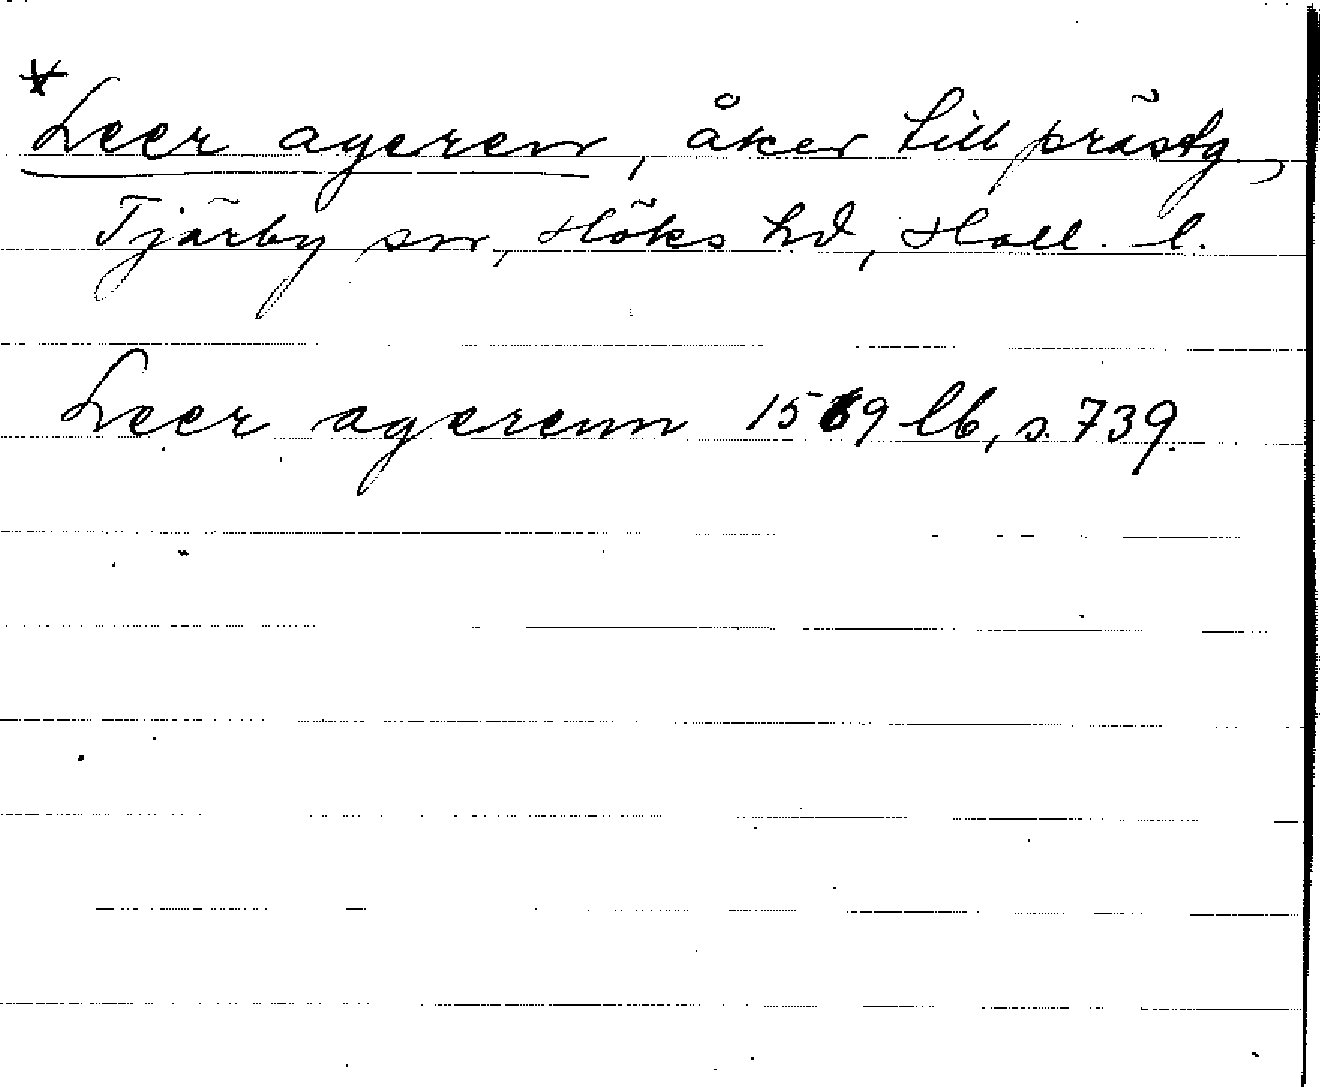 * Leer ageren, åker till prästg,
Tjärby sn, Höks hd, Hall. l.
Leer agerenn 1569 lb, s. 739.